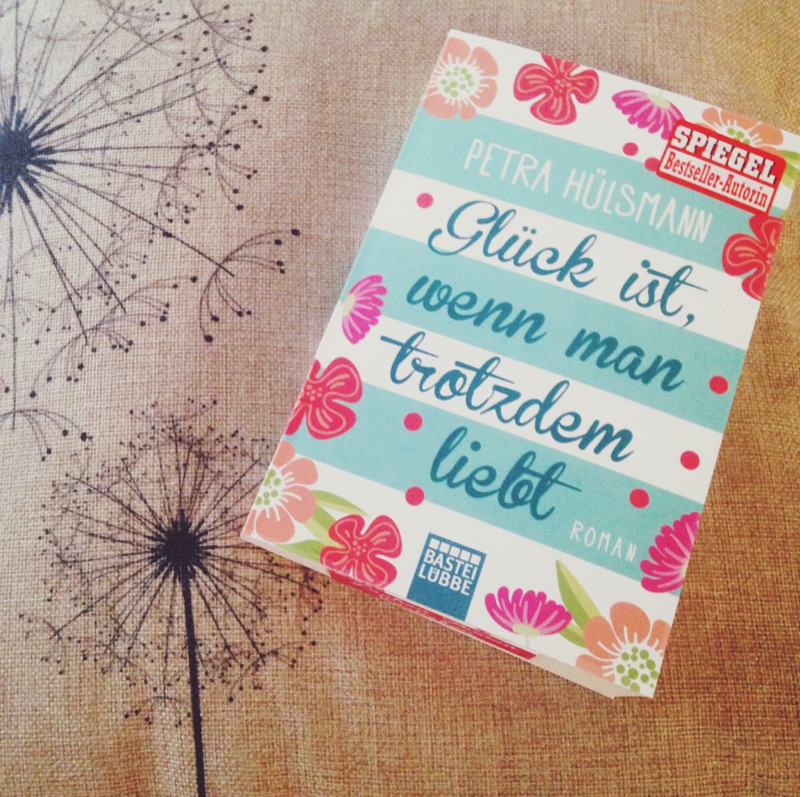 SPIEGEL
Bestseller-Autorin
PETRA HÜLSMANN
Glück ist,
wenn man
trotzdem
liebt
ROMAN
BASTEI
LÜBBE